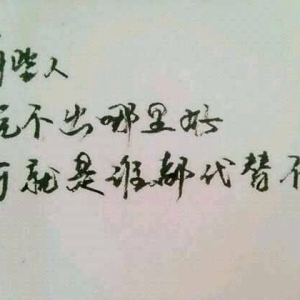 有些人
说不出哪里好
可就是谁都代替不